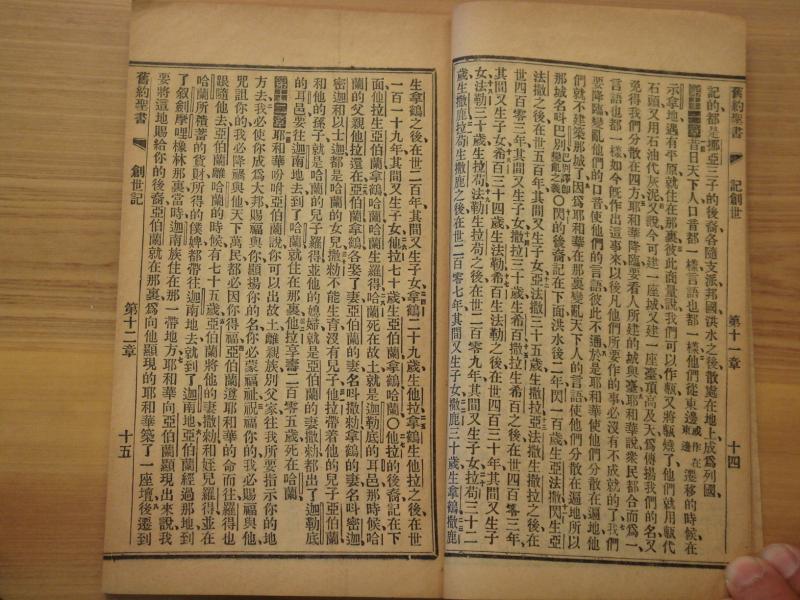 舊約聖書 記創世 第十一章 十四
記的都是挪亞三子的後裔各隨支派邦國洪水之後散處在地上成爲列國
第十一章昔日天下人口音都一樣言語也都一樣他們從東邊或作在東邊遷移的時候在
示拿地遇有平原就住在那裏彼此商量說我們可以作甎又將甎燒了他們就用甎代
石頭又用石油代灰泥又說今可建一座城又建一座臺頂高及天爲傳揚我們的名又
免得我們分散在四方耶和華降臨要看人所建的城與臺耶和華說衆民都合而爲一
言語也都一樣如今旣作出這事來以後凡他們所要作的事必沒有不成就的了我們
要降臨變亂他們的口音使他們的言語彼此不通於是耶和華使他們分散在遍地他
們就不建築那城了因爲耶和華在那裏變亂天下人的言語使他們分散在遍地所以
那城名呌巴別巴別譯卽變亂之義〇閃的後裔記在下面洪水後二年閃一百歲生亞法撒閃生亞
法撒之後在世五百年其間又生子女亞法撒三十五歲生撒拉亞法撒生撒拉之後在
世四百零三年其間又生子女撒拉三十歲生希百撒拉生希百之後在世四百零三年
其間又生子女希百三十四歲生法勒希百生法勒之後在世四百三十年其間又生子
女法勒三十歲生拉茍法勒生拉茍之後在世二百零九年其間又生子女拉茍三十二
歲生撒鹿拉茍生撒鹿之後在世二百零七年其間又生子女撒鹿三十歲生拿鶴撒鹿
生拿鶴之後在世二百年其間又生子女拿鶴二十九歲生他拉拿鶴生他拉之後在世
一百一十九年其間又生子女他拉七十歲生亞伯蘭拿鶴哈蘭〇他拉的後裔記在下
面他拉生亞伯蘭拿鶴哈蘭哈蘭生羅得哈蘭死在故土就是迦勒底的耳邑那時候哈
蘭的父親他拉還在亞伯蘭拿鶴各娶了妻亞伯蘭的妻名呌撒勑拿鶴的妻名呌密迦
密迦和以士迦都是哈蘭的女兒撒勑不能生育沒有兒子他拉帶着他的兒子亞伯蘭
和他的孫子就是哈蘭的兒子羅得並他的媳婦就是亞伯蘭的妻撒勑都出了迦勒底
的耳邑要往迦南地去到了哈蘭就住在那裏他拉享壽二百零五歲死在哈蘭
第十二章耶和華吩咐亞伯蘭說你可以出故土離親族別父家往我所要指示你的地
方去我必使你成爲大邦賜福與你顯揚你的名你必蒙福祉祝福你的我必賜福與他
咒詛你的我必降禍與他天下萬民都必因你得福亞伯蘭遵耶和華的命而往羅得也
跟隨他去亞伯蘭離哈蘭的時候有七十五歲亞伯蘭將他的妻撒勑和姪兒羅得並在
哈蘭所積蓄的貨財所得的僕婢都帶往迦南地去就到了迦南地亞伯蘭經過那地到
了叙劍摩哩橡林那裏當時迦南族住在那一帶地方耶和華向亞伯蘭顯現出來說我
要將這地賜給你的後裔亞伯蘭就在那裏爲向他顯現的耶和華築了一座壇後遷到
舊約聖書 創世記 第十二章 十五